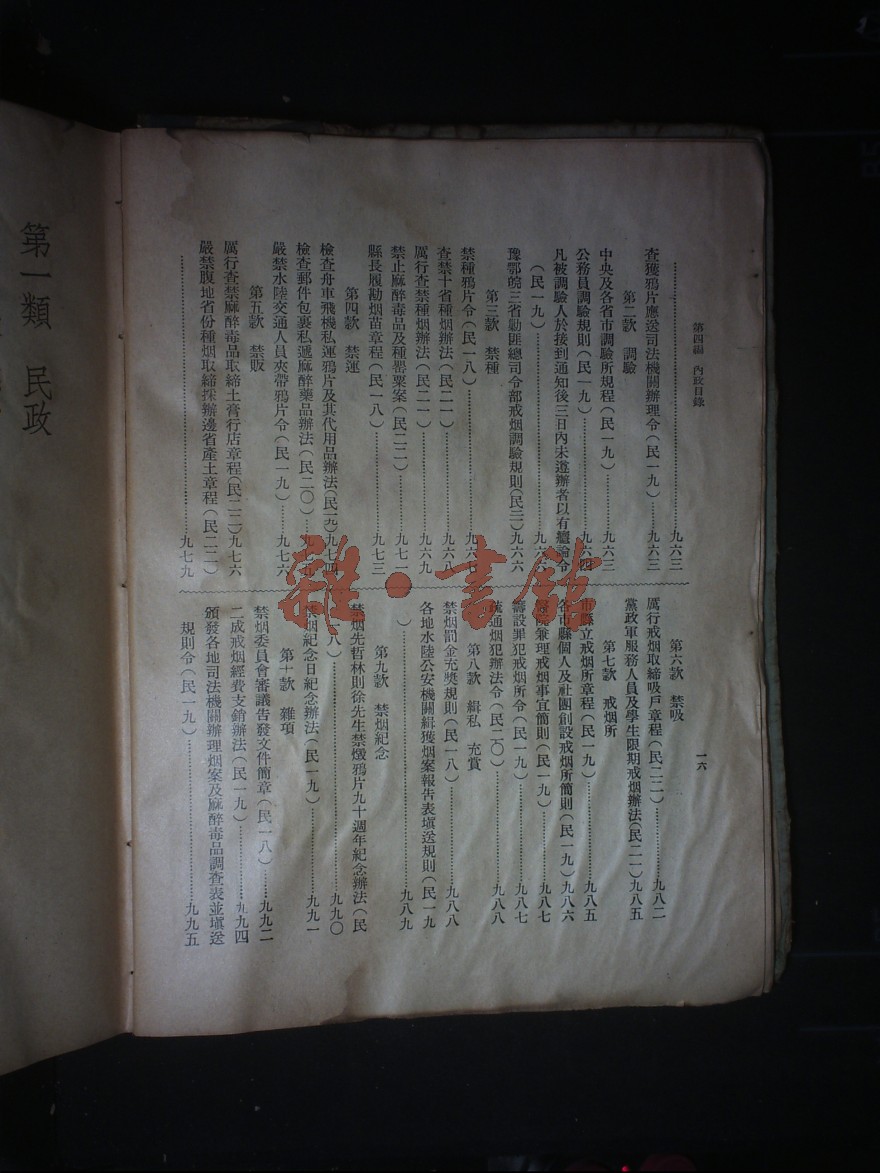 第四編　內政目錄
一六
…………九六三
查獲鴉片應送司法機關辦理令（民一九）…………九六三
第二款　調驗
中央及各省市調驗所規程（民一九）…………九六三
公務員調驗規則（民一九）…………九六四
凡被調驗人於接到通知後三日內未遵辦者以有癮論令
（民一九）…………九六
豫鄂皖三省勦匪總司令部戒烟調驗規則（民三）九六六
第三款　禁種
禁種鴉片令（民一八）…………九六
查禁十省種烟辦法（民二一）…………九六八
厲行查禁種烟辦法（民二一）…………九六九
禁止麻醉毒品及種罌粟案（民二二）…………九七一
縣長履勘烟苗章程（民一八）…………九七三
第四款　禁運
檢查舟車飛機私運鴉片及其代用品辦法（民一九）九七四
檢查郵件包裹私遞麻醉藥品辦法（民二〇）…………九七五
嚴禁水陸交通人員夾帶鴉片令（民一九）…………九七六
第五款　禁販
厲行查禁麻醉毒品取締土膏行店章程（民二二）九七六
嚴禁腹地省份種烟取締採辦邊省產土章程（民二二）
…………九七九
第六款　禁吸
厲行戒烟取締吸戶章程（民二二）…………九八二
黨政軍服務人員及學生限期戒烟辦法（民二一）九八五
第七款　戒烟所
市縣立戒烟所章程（民一九）…………九八五
各市縣個人及社團創設戒烟所簡則（民一九）九八六
醫院兼理戒烟事宜簡則（民一九）…………九八七
籌設罪犯戒烟所令（民一九）…………九八七
疏通烟犯辦法令（民二〇）…………九八八
第八款　緝私　充賞
禁烟罰金充獎規則（民一八）…………九八八
各地水陸公安機關緝獲烟案報告表塡送規則（民一九
）…………九八九
第九款　禁烟紀念
禁烟先哲林則徐先生禁燬鴉片九十週年紀念辦法（民
一八）…………九九〇
禁烟紀念日紀念辦法（民一九）…………九九一
第十款　雜項
禁烟委員會審議告發文件簡章（民一八）…………九九二
二成戒烟經費支銷辦法（民一九）…………九九四
頒發各地司法機關辦理烟案及麻醉毒品調查表並塡送
規則令（民一九）…………九九五
第一類　民政
雜·書館